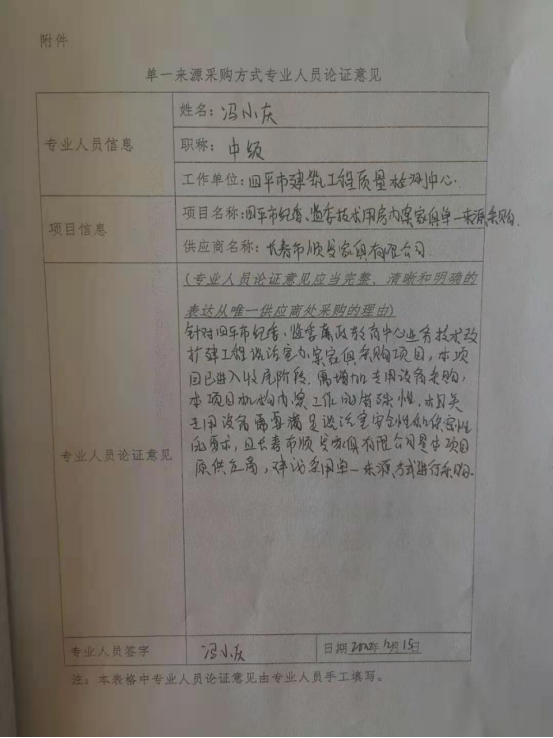 附件
单一来源采购方式专业人员论证意见
专业人员信息
姓名：冯小庆
职称：中级
工作单位：四平市建筑工程质量检测中心
项目信息
项目名称：四平市纪委、监委技术用房办案家俱单一来源采购
供应商名称：长春市顺发家俱有限公司
专业人员论证意见
（专业人员论证意见应当完整、清晰和明确的
表达从唯一供应商处采购的理由）
针对四平市纪委、监委廉政教育中心业务技术改
扩建工程谈话室办案家俱采购项目，本项
目已进入收尾阶段，需增加专用设备采购，
本项目机构办案工作的特殊性，相关
专用设备需要满足谈话室安全性和保密性
的要求，且长春市顺发家俱有限公司是本项目
原供应商，建议采用单一来源方式进行采购。
专业人员签字
冯小庆
日期 12月15日
注：本表格中专业人员论证意见由专业人员手工填写。